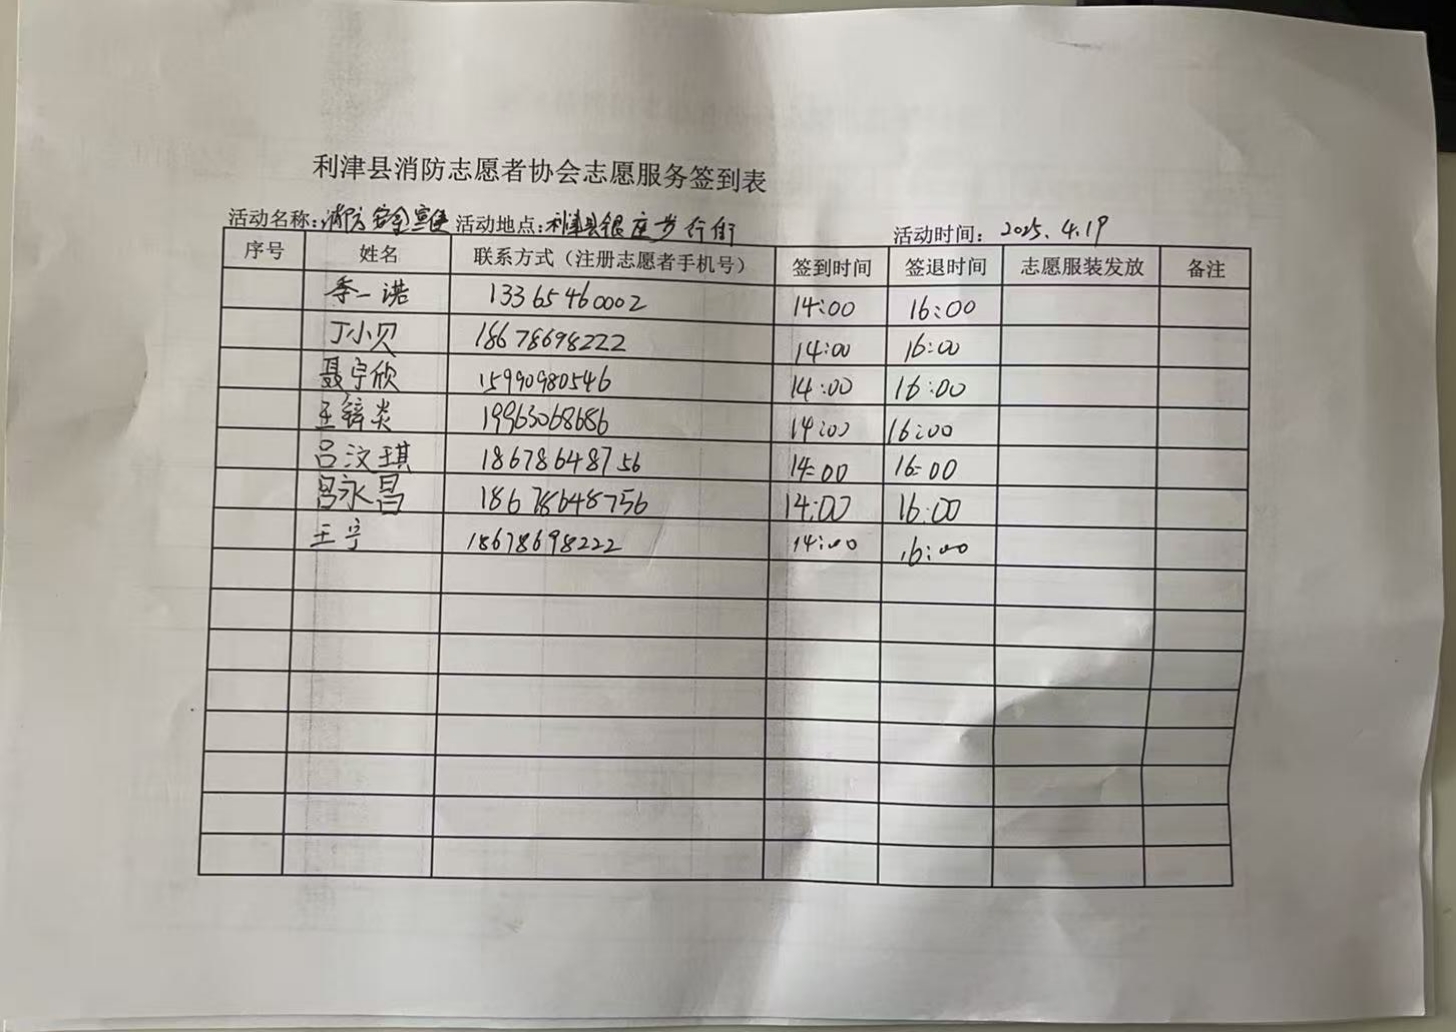 利津县消防志愿者协会志愿服务签到表
活动名称：消防安全宣传 活动地点：利津县银座步行街 活动时间：2025.4.19
序号 姓名 联系方式（注册志愿者手机号） 签到时间 签退时间 志愿服装发放 备注
李一诺 13365460002 14:00 16:00
丁小贝 18678698222 14:00 16:00
聂宇欣 15990980546 14:00 16:00
王锌炎 19963068686 14:00 16:00
吕汶琪 18678648756 14:00 16:00
吕永昌 18678648756 14:00 16:00
王宁 18678698222 14:00 16:00